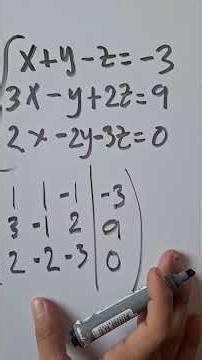 x+y-z=-3
3x-y+2z=9
2x-2y-3z=0
1 1 -1 | -3
3 -1 2 | 9
2 -2 -3 | 0